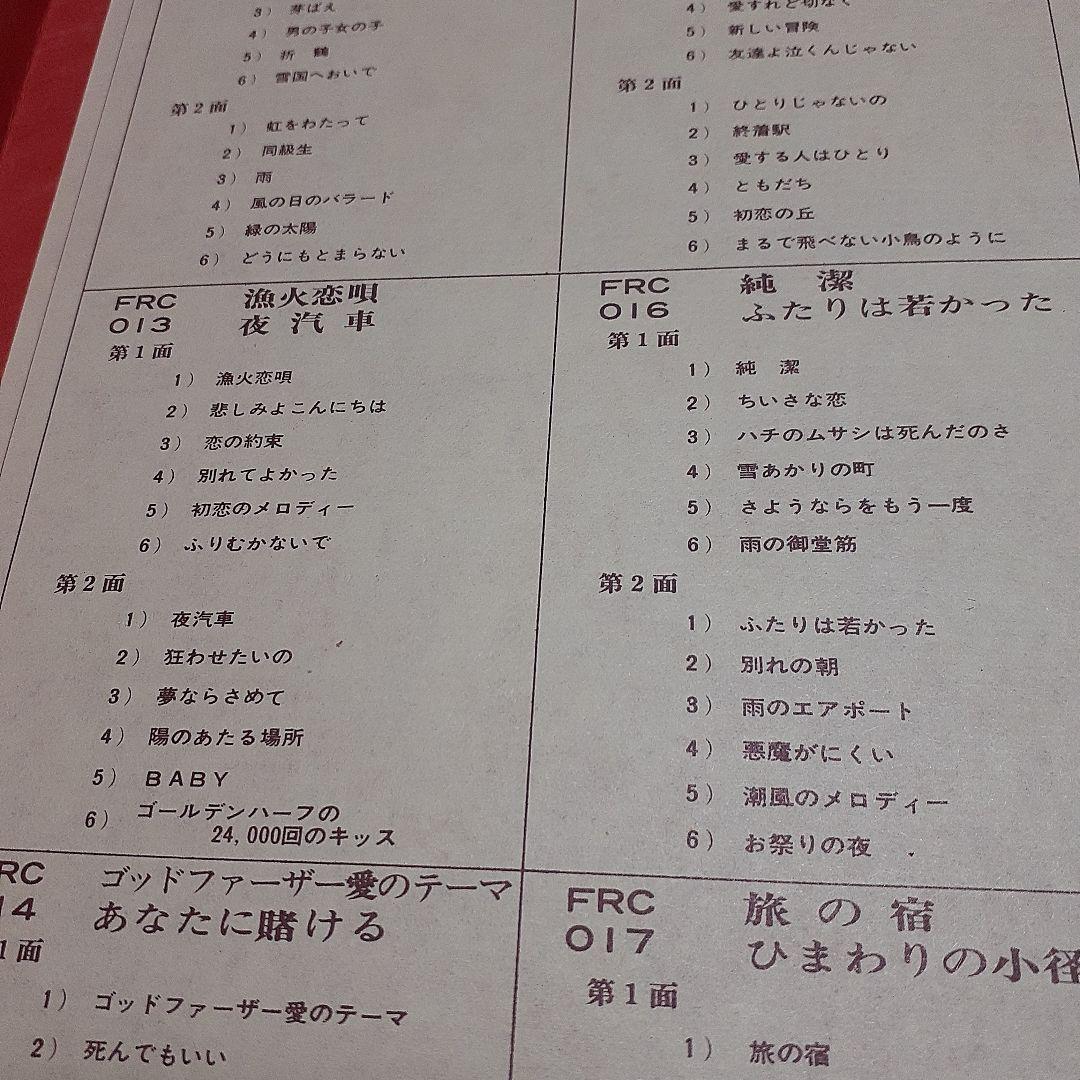 3) 芽ばえ
4) 男の子女の子
5) 折　鶴
6) 雪国へおいで
第2面
1) 虹をわたって
2) 同級生
3) 雨
4) 風の日のバラード
5) 緑の太陽
6) どうにもとまらない
4) 愛すれど切なく
5) 新しい冒険
6) 友達よ泣くんじゃない
第2面
1) ひとりじゃないの
2) 終着駅
3) 愛する人はひとり
4) ともだち
5) 初恋の丘
6) まるで飛べない小鳥のように
FRC 漁火恋唄
013 夜汽車
第1面
1) 漁火恋唄
2) 悲しみよこんにちは
3) 恋の約束
4) 別れてよかった
5) 初恋のメロディー
6) ふりむかないで
第2面
1) 夜汽車
2) 狂わせたいの
3) 夢ならさめて
4) 陽のあたる場所
5) BABY
6) ゴールデンハーフの
24,000回のキッス
FRC 純　潔
016 ふたりは若かった
第1面
1) 純　潔
2) ちいさな恋
3) ハチのムサシは死んだのさ
4) 雪あかりの町
5) さようならをもう一度
6) 雨の御堂筋
第2面
1) ふたりは若かった
2) 別れの朝
3) 雨のエアポート
4) 悪魔がにくい
5) 潮風のメロディー
6) お祭りの夜
RC ゴッドファーザー愛のテーマ
14 あなたに賭ける
1面
1) ゴッドファーザー愛のテーマ
2) 死んでもいい
FRC 旅の宿
017 ひまわりの小径
第1面
1) 旅の宿